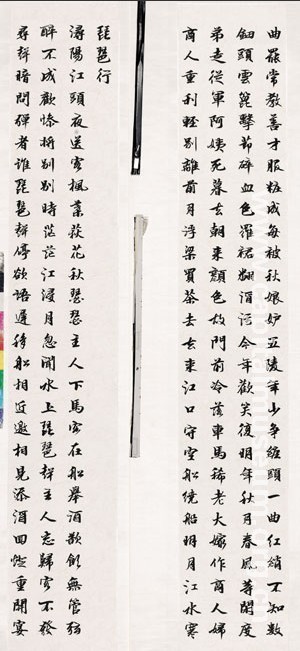 曲罷常教善才服粧成每被秋娘妒五陵年少爭纏頭一曲紅綃不知數
鈿頭雲篦擊節碎血色羅裙翻酒污今年歡笑復明年秋月春風等閒度
弟走從軍阿姨死暮去朝來顏色故門前冷落車馬稀老大嫁作商人婦
商人重利輕別離前月浮梁買茶去去來江口守空船繞船明月江水寒
琵琶行
潯陽江頭夜送客楓葉荻花秋瑟瑟主人下馬客在船舉酒欲飲無管弦
醉不成歡慘將別別時茫茫江浸月忽聞水上琵琶聲主人忘歸客不發
尋聲暗問彈者誰琵琶聲停欲語遲移船相近邀相見添酒回燈重開宴